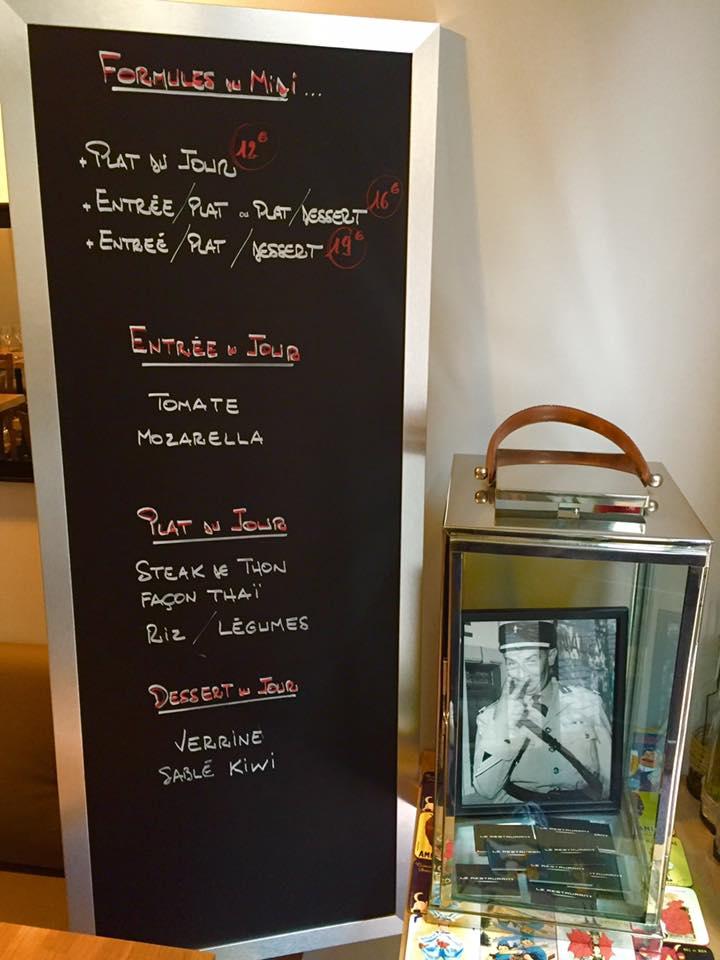 FORMULES DU MIDI...
+ PLAT DU JOUR 12€
+ ENTRÉE/PLAT OU PLAT/DESSERT 16€
+ ENTREÉ/PLAT/DESSERT 19€
ENTRÉE DU JOUR
TOMATE
MOZARELLA
PLAT DU JOUR
STEAK DE THON
FAÇON THAÏ
RIZ/LÉGUMES
DESSERT DU JOUR
VERRINE
SABLÉ KIWI
LE RESTAURANT
LE RESTAURANT
LE RESTAURANT
LE RESTAURANT